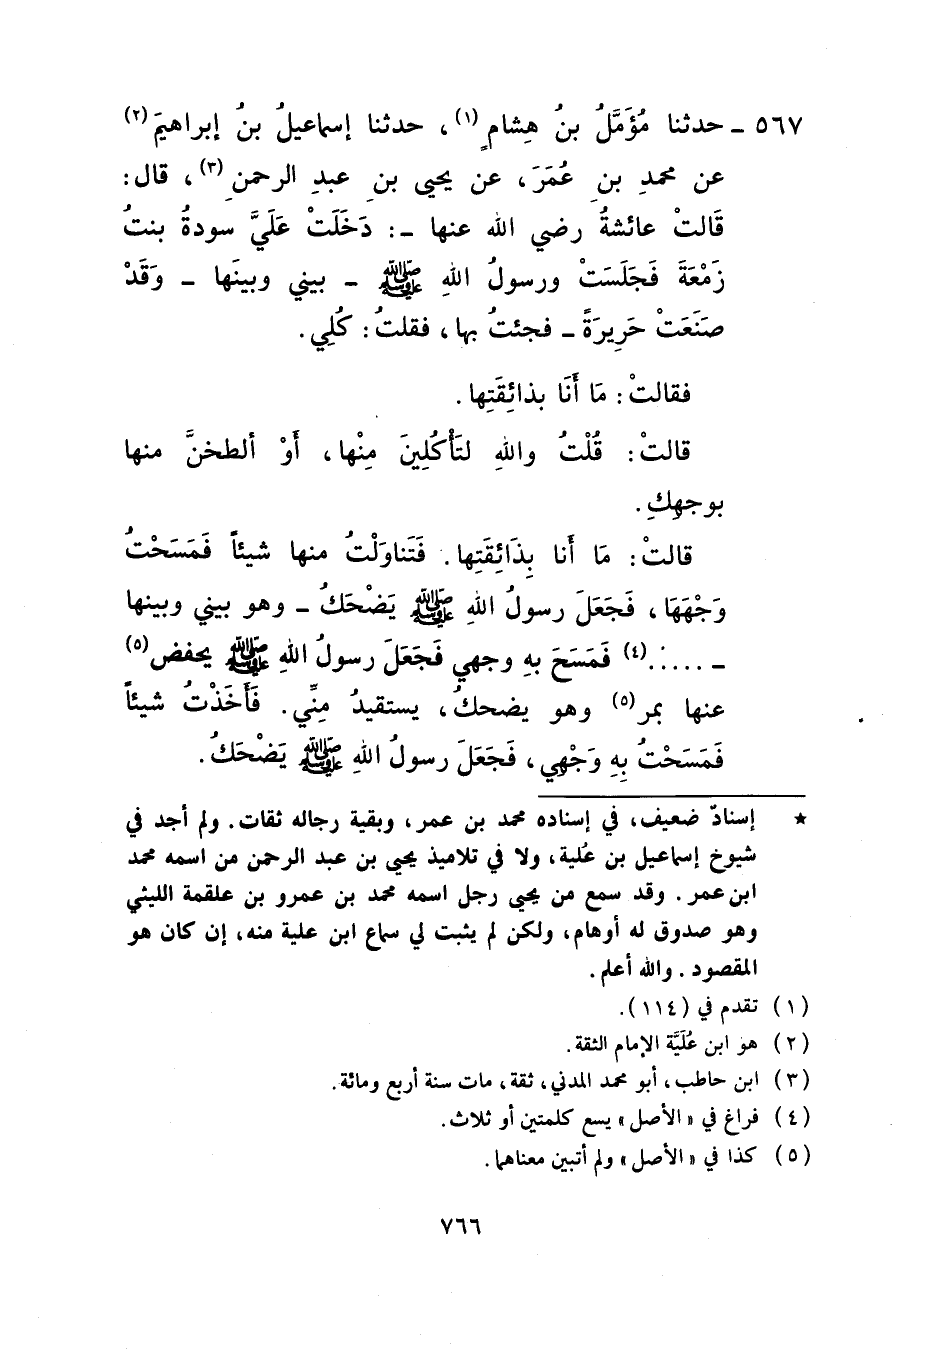 ٥٦٧ ـ حدثنا مُؤَمَّلُ بنُ هِشامٍ (١)، حدثنا إسماعيلُ بنُ إبراهيمَ (٢)
عن محمدِ بنِ عُمَرَ، عن يحيى بنِ عبدِ الرحمنِ (٣)، قال:
قَالتْ عائشةُ رضي الله عنها ـ: دَخَلَتْ عَلَيَّ سودةُ بنتُ
زَمْعَةَ فَجَلَسَتْ ورسولُ اللهِ ﷺ ـ بيني وبينَها ـ وَقَدْ
صَنَعَتْ حَرِيرَةً ـ فجئتُ بها، فقلتُ: كُلِي.
فقالتْ: مَا أَنَا بذائِقَتِها.
قالتْ: قُلْتُ واللهِ لتَأْكُلِينَ مِنْها، أَوْ ألطخنَّ منها
بوجهِكِ.
قالتْ: مَا أَنا بِذَائِقَتِها. فَتَناوَلْتُ منها شيئاً فَمَسَحْتُ
وَجْهَهَا، فَجَعَلَ رسولُ اللهِ ﷺ يَضْحَكُ ـ وهو بيني وبينها
ـ ..... (٤) فَمَسَحَ بهِ وجهي فَجَعَلَ رسولُ اللهِ ﷺ يحفض (٥)
عنها بمر (٥) وهو يضحكُ، يستقيدُ مِنِّي. فَأَخَذْتُ شيئاً
فَمَسَحْتُ بِهِ وَجْهِي، فَجَعَلَ رسولُ اللهِ ﷺ يَضْحَكُ.
★ إسنادٌ ضعيف، في إسناده محمد بن عمر، وبقية رجاله ثقات. ولم أجد في
شيوخ إسماعيل بن عُلية، ولا في تلاميذ يحيى بن عبد الرحمن من اسمه محمد
ابن عمر. وقد سمع من يحيى رجل اسمه محمد بن عمرو بن علقمة الليثي
وهو صدوق له أوهام، ولكن لم يثبت لي سماع ابن علية منه، إن كان هو
المقصود. والله أعلم.
(١) تقدم في (١١٤).
(٢) هو ابن عُلَيَّة الإمام الثقة.
(٣) ابن حاطب، أبو محمد المدني، ثقة، مات سنة أربع ومائة.
(٤) فراغ في «الأصل» يسع كلمتين أو ثلاث.
(٥) كذا في «الأصل» ولم أتبين معناهما.
٧٦٦